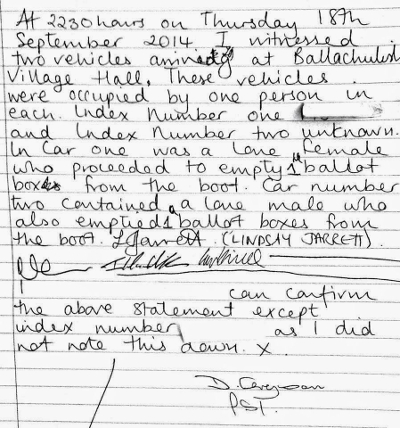 At 2230 hours on Thursday 18th
September 2014 I witnessed
two vehicles arriving at Ballachulish
Village Hall. These vehicles
were occupied by one person in
each. Index Number one
and Index Number two unknown.
In Car one was a lone female
who proceeded to empty 1 ballot
boxes from the boot. Car number
two contained a lone male who
also emptied 1 ballot boxes from
the boot. LJarrett. (LINDSAY JARRETT).
can confirm
the above statement except
index number as I did
not note this down. x.
D. Ferguson